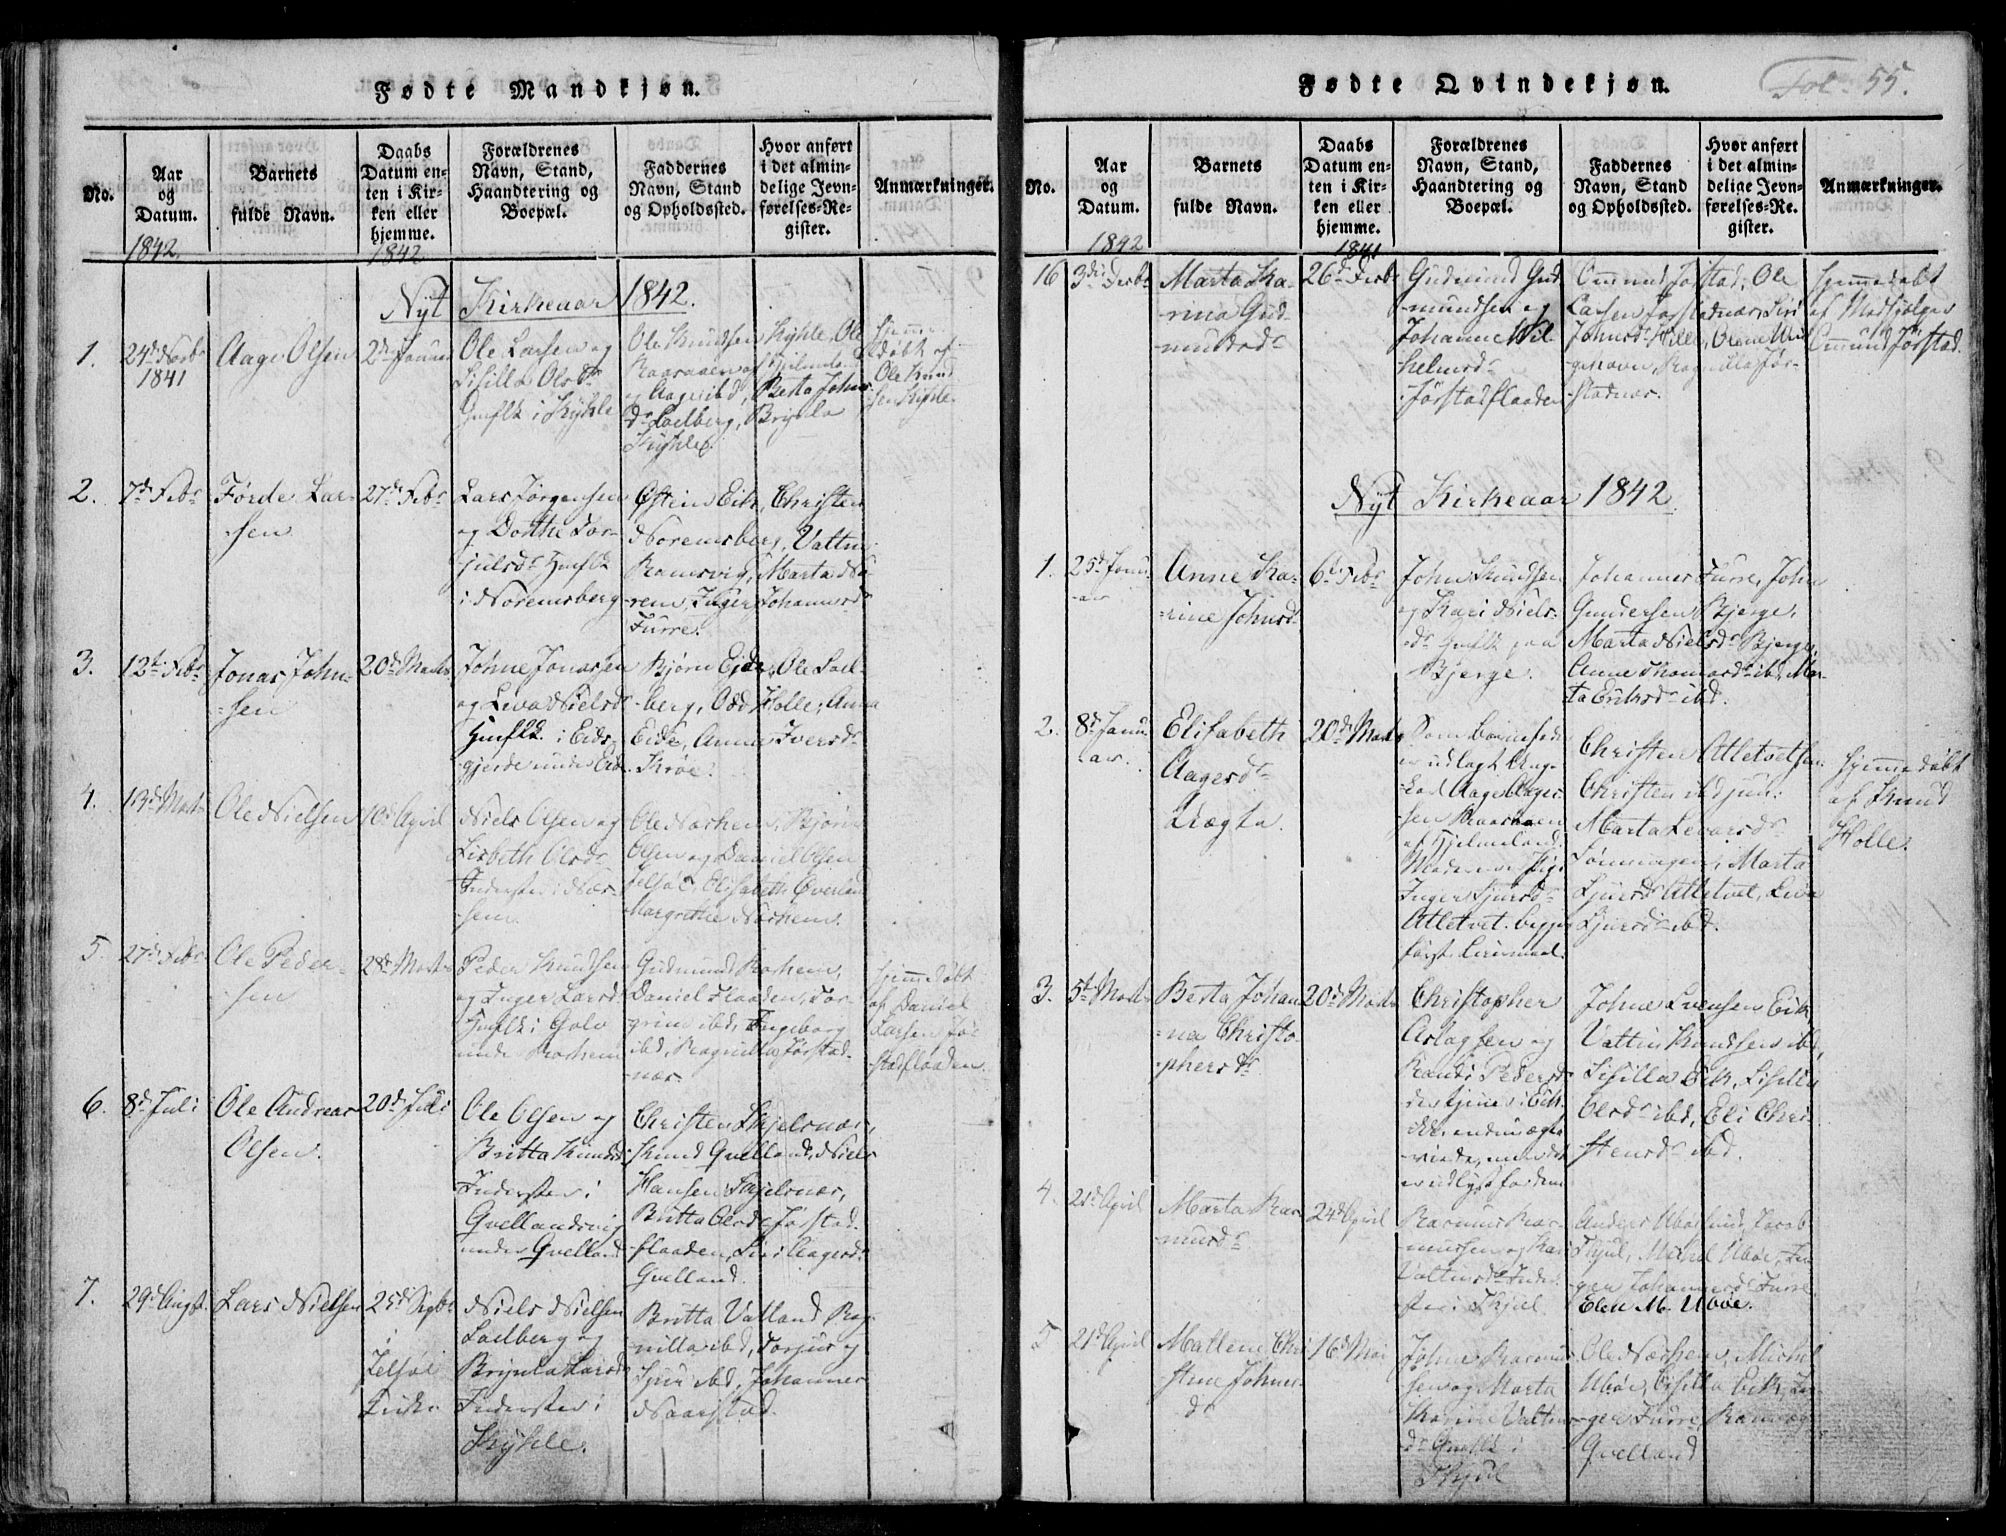 Fødte Mandkjøn.
No.
Aar
og
Datum.
1842
Barnets
fulde Navn.
Daabs
Datum en-
ten i Kir-
ken eller
hjemme.
1842
Forældrenes
Navn, Stand,
Haandtering og
Boepæl.
Faddernes
Navn, Stand
og Opholdssted.
Hvor anført
i det almin-
delige Jevn-
førelses-Re-
gister.
Anmærkninger.
Nyt Kirkeaar 1842.
1.
1841
Aage Olsen
Ole Larsen og
Sisilla Olsdr
i Kyhle
Ole Knudsen Kyhle, Ole
Berta Johns
dr Laelberg, Brynla
Kyhle.
døbt af
Ole Knud
sen Kyhle.
2.
7de Febr
Førde Lar-
sen
27de Febr
Lars Jørgensen
og Dorthe Tor-
julsdr Huusflk
i Noremsberg
Østein Eik, Christen
Noremsberg, Valtin
Ramsvig, Marta No-
rem, Inger Johannesdr
Furre.
3.
12te Febr
Jonas John-
sen
20de Marts
Johne Jonassen
og Leva Nielsdr
Huusflk. i Eids-
gjerde under Eide.
Bjørn Eide, Ole Lael-
berg, Odd Holle, Anna
Eide, Anna Iversdr
Krøe.
4.
13de Marts
Ole Nielsen
10de April
Niels Olsen og
Lisbeth Olsdr
Indersten i Nær-
hem
Ole Nærhem, Bjørn
Olsen og Daniel Olsen
Jelsøe, Elisabeth Øverland
Margrethe Nærhem.
5.
27de Febr
Ole Peder-
sen
28de Marts
Peder Knudsen
og Inger Larsdr
Huusflk i Golv
under Barkem
Gudmund Barkem,
Daniel Flaaden, Tor-
grim ibd, Ingeborg
ibd, Ragnilla Jørstad-
nær.
hjemdøbt
af Daniel
Larsen Jør-
stadflaaden.
6.
8de Juli
Ole Andreas
Olsen.
20de Juli
Ole Olsen og
Britta Knudsdr
Indersten i
Qvellandsvig
under Qvelland
Christen Skjelnær,
Knud Qvelland, Niels
Hansen Skjelnær,
Britta Olsdr Jøstad
flaaden, Siri Aagesdr
Qvelland.
7.
29de Augst.
Lars Nielsen
25de Septbr
i
Jelsøe
Kirke
Niels Nielsen
Laelberg og
Brynla Larsdr
Indersten i
Kyhle.
Britta Valland, Rag-
nilla ibd, Torjus og
Sjur ibd, Johannes
Naarstad.
Fødte Qvindekjøn.
Fol. 55.
No.
Aar
og
Datum.
1842
Barnets
fulde Navn.
Daabs
Datum en-
ten i Kir-
ken eller
hjemme.
1841
Forældrenes
Navn, Stand,
Haandtering og
Boepæl.
Faddernes
Navn, Stand
og Opholdssted.
Hvor anført
i det almin-
delige Jevn-
førelses-Re-
gister.
Anmærkninger.
16
3die Decbr
Marta Ka-
rina Gud-
mundsdr
26de Decbr
Gudmund Gud
mundsen og
Johanne Wil-
helmsdr
Jørstadflaaden
Ommund Jøstad, Ole
Larsen Jørstadnær, Siri
Johnsdr Hille, Olene
Ragnilla Jør-
stadnær.
hjemmedøbt
af Medfølger
Ommund Jørstad.
Nyt Kirkeaar 1842
1.
25de Janu-
ar
Anne Ka-
rine Johnsdr
6te Febr
John Knudsen
og Kari Niels-
dr Huusflk paa
Bjerge.
Johannes Furre, John
Gundersen Bjerge,
Marta Nielsdr Bjerge,
Anne Thomasdr ibd, Mar-
ta Eriksdr ibd.
2.
8de Janu-
ar.
Elisabeth
Aagesdr
uægta.
20de Marts
er udlagt Ung-
karl Aage Aages-
sen Raasaaen
af Hjelmeland.
Moderen er Pige
Inger Sjursdr
Atletvet. begges
første Leiermaal
Christen Atletvetsen
Christen ibd jun:
Marta Levorsdr
Lønningen, Marta
Sjursdr Atletvet, Leva
Sjursdr ibd.
hjemmedøbt
af Knud
Holle.
3.
5te Marts
Berta Johan
na Christo-
phersdr
20de Marts
Christopher
Aslagsen og
Randi Pedersdr
der tjener i Eik
ikke endnu ægte-
viede, men der
er udlyst for dem
Johne Svensen Eik,
Valtin Knudsen ibd,
Sisilla Eik, Sisilla
Olsdr ibd, Eli Chri-
stensdr ibd.
4.
21de April
Marta Ras-
musdr
24de April
Rasmus Ras-
mussen og Kari
Valtinsdr Inder-
sten i Skjøl
Jacob
Skjul, Michel Ubøe, In-
ger Johannesdr Furre
Elen M. Ubøe.
5
21de April
Mallene Chri
stine Johns-
dr
16de Mai
Johne Rasmus-
sen og Marta
Karine Valtins-
dr Huusflk i
Skjul
Ole Nærhem, Michel
Ubøe, Sisilla Eik, In-
ger Furre,
Qvelland